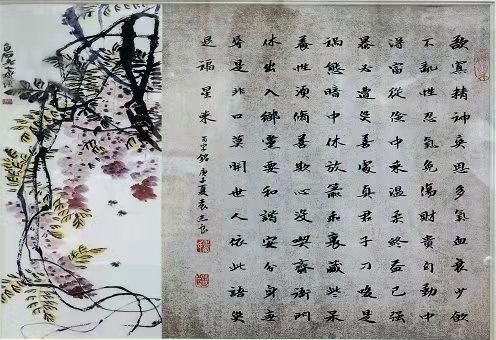 欲寡精神爽思多氣血衰少飲
不亂性忍氣免傷財貴自勤中
得富從儉中來溫柔終益己強
暴必遭災善處真君子刁唆是
禍 暗中休放箭乖裏藏些呆
養性須脩善欺心 喫齋衙門
休出入鄉黨要和諧安分身無
辱是非口莫開世人依此語災
退福星來
百字銘庚子夏袁志